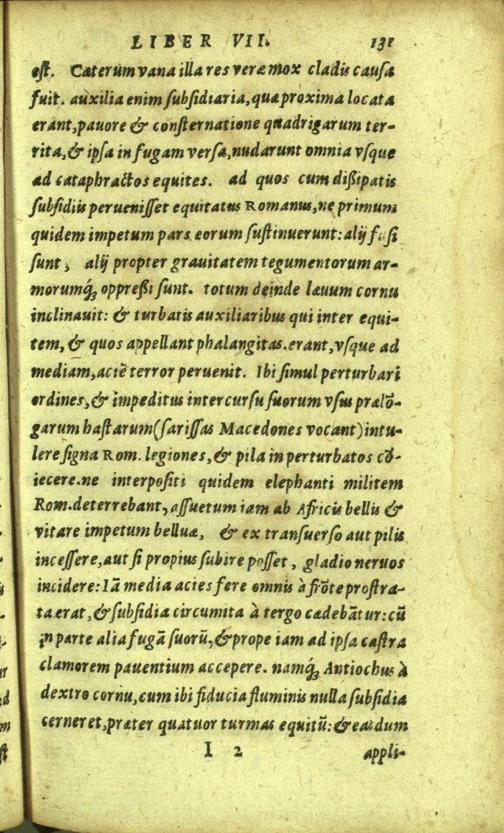 LIBER VII. 131
est. Cæterùm vana illa res veræ mox cladis causa
fuit. auxilia enim subsidiaria, quæ proxima locata
erant, pauore & consternatione quadrigarum ter-
rita, & ipsa in fugam versa, nudarunt omnia vsque
ad cataphractos equites. ad quos cum dißipatis
subsidiis peruenisset equitatus Romanus, ne primum
quidem impetum pars eorum sustinuerunt: alij fusi
sunt, alij propter grauitatem tegumentorum ar-
morumq́; oppreßi sunt. totum deinde læuum cornu
inclinauit: & turbatis auxiliaribus qui inter equi-
tem, & quos appellant phalangitas. erant, vsque ad
mediam, aciẽ terror peruenit. Ibi simul perturbari
ordines, & impeditus intercursu suorum vsus prælõ-
garum hastarum (sarissas Macedones vocant) intu-
lere signa Rom. legiones, & pila in perturbatos cõ-
iecere. ne interpositi quidem elephanti militem
Rom. deterrebant, assuetum iam ab Africis bellis &
vitare impetum belluæ, & ex transuerso aut pilis
incessere, aut si propius subire posset, gladio neruos
incidere: Iã media acies fere omnis à frõte prostra-
ta erat, & subsidia circumita à tergo cædebãtur: cũ
in parte alia fugã suorũ, & prope iam ad ipsa castra
clamorem pauentium accepere. namq́; Antiochus à
dextro cornu, cum ibi fiducia fluminis nulla subsidia
cerneret, præter quatuor turmas equitũ: & eas dum
I 2 appli-